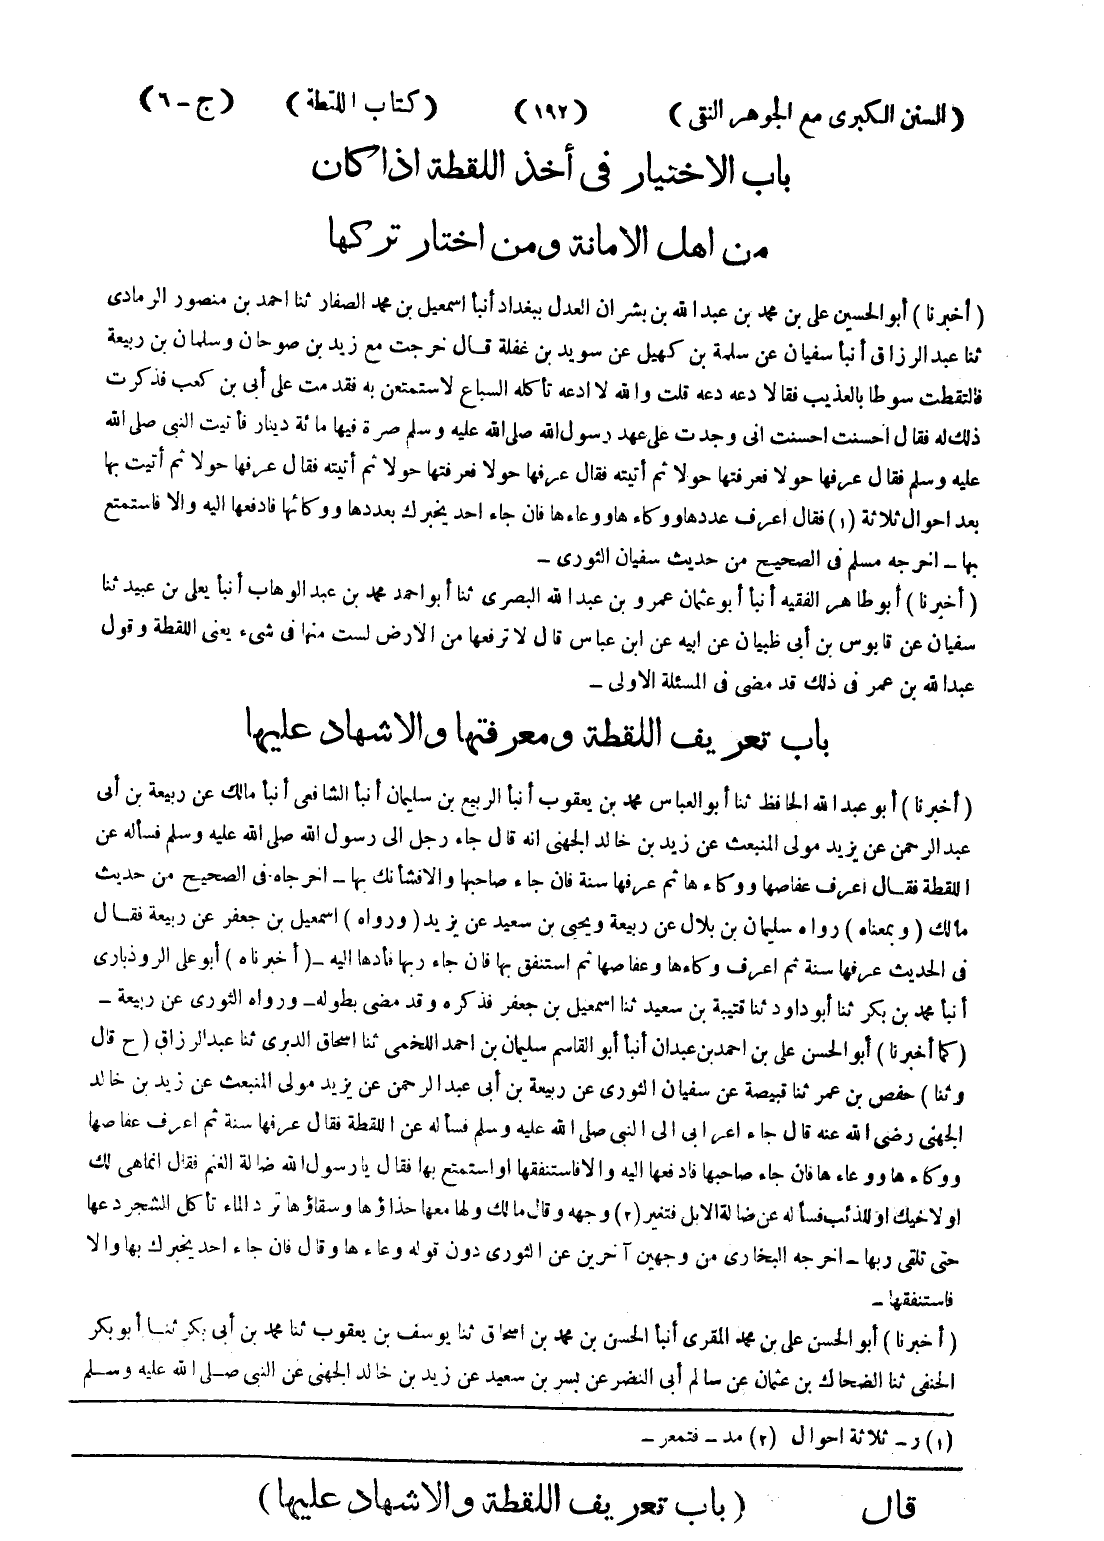 (السنن الكبرى مع الجوهر النقى) (١٩٢) (كتاب اللقطة) (ج - ٦)
باب الاختيار فى أخذ اللقطة اذا كان
من اهل الامانة ومن اختار تركها
(أخبرنا) أبو الحسين على بن محمد بن عبد الله بن بشران العدل ببغداد أنبأ اسمعيل بن محمد الصفار ثنا احمد بن منصور الرمادى
ثنا عبد الرزاق أنبأ سفيان عن سلمة بن كهيل عن سويد بن غفلة قال خرجت مع زيد بن صوحان وسلمان بن ربيعة
فالتقطت سوطا بالعذيب فقالا دعه دعه قلت والله لا ادعه تأكله السباع لاستمتعن به فقدمت على أبى بن كعب فذكرت
ذلك له فقال احسنت احسنت انى وجدت على عهد رسول الله صلى الله عليه وسلم صرة فيها مائة دينار فأتيت النبى صلى الله
عليه وسلم فقال عرفها حولا فعرفتها حولا ثم أتيته فقال عرفها حولا فعرفتها حولا ثم أتيته فقال عرفها حولا ثم أتيت بها
بعد احوال ثلاثة (١) فقال اعرف عددها ووكاءها ووعاءها فان جاء احد يخبرك بعددها ووكائها فادفعها اليه والا فاستمتع
بها - اخرجه مسلم فى الصحيح من حديث سفيان الثورى -
(أخبرنا) أبو طاهر الفقيه أنبأ أبو عثمان عمرو بن عبد الله البصرى ثنا أبو احمد محمد بن عبد الوهاب أنبأ يعلى بن عبيد ثنا
سفيان عن قابوس بن أبى ظبيان عن ابيه عن ابن عباس قال لا ترفعها من الارض لست منها فى شىء يعنى اللقطة وقول
عبد الله بن عمر فى ذلك قد مضى فى المسئلة الاولى -
باب تعريف اللقطة ومعرفتها والاشهاد عليها
(أخبرنا) أبو عبد الله الحافظ ثنا أبو العباس محمد بن يعقوب أنبأ الربيع بن سليمان أنبأ الشافعى أنبأ مالك عن ربيعة بن أبى
عبد الرحمن عن يزيد مولى المنبعث عن زيد بن خالد الجهنى انه قال جاء رجل الى رسول الله صلى الله عليه وسلم فسأله عن
اللقطة فقال اعرف عفاصها ووكاءها ثم عرفها سنة فان جاء صاحبها والا فشأنك بها - اخرجاه فى الصحيح من حديث
مالك (وبمعناه) رواه سليمان بن بلال عن ربيعة ويحيى بن سعيد عن يزيد (ورواه) اسمعيل بن جعفر عن ربيعة فقال
فى الحديث عرفها سنة ثم اعرف وكاءها وعفاصها ثم استنفق بها فان جاء ربها فأدها اليه - (أخبرناه) أبو على الروذبارى
أنبأ محمد بن بكر ثنا أبو داود ثنا قتيبة بن سعيد ثنا اسمعيل بن جعفر فذكره وقد مضى بطوله - ورواه الثورى عن ربيعة -
(كما أخبرنا) أبو الحسن على بن احمد بن عبدان أنبأ أبو القاسم سليمان بن احمد اللخمى ثنا اسحاق الدبرى ثنا عبد الرزاق (ح قال
وثنا) حفص بن عمر ثنا قبيصة عن سفيان الثورى عن ربيعة بن أبى عبد الرحمن عن يزيد مولى المنبعث عن زيد بن خالد
الجهنى رضى الله عنه قال جاء اعرابى الى النبى صلى الله عليه وسلم فسأله عن اللقطة فقال عرفها سنة ثم اعرف عفاصها
ووكاءها ووعاءها فان جاء صاحبها فادفعها اليه والا فاستنفقها او استمتع بها فقال يا رسول الله ضالة الغنم فقال انما هى لك
او لاخيك او للذئب فسأله عن ضالة الابل فتغير (٢) وجهه وقال مالك ولها معها حذاؤها وسقاؤها ترد الماء تأكل الشجر دعها
حتى تلقى ربها - اخرجه البخارى من وجهين آخرين عن الثورى دون قوله وعاءها وقال فان جاء احد يخبرك بها والا
فاستنفقها -
(أخبرنا) أبو الحسن على بن محمد المقرى أنبأ الحسن بن محمد بن اسحاق ثنا يوسف بن يعقوب ثنا محمد بن أبى بكر ثنا أبو بكر
الحنفى ثنا الضحاك بن عثمان عن سالم أبى النضر عن بسر بن سعيد عن زيد بن خالد الجهنى عن النبى صلى الله عليه وسلم
(١) ر - ثلاثة احوال (٢) مد - فتمعر -
قال (باب تعريف اللقطة والاشهاد عليها)